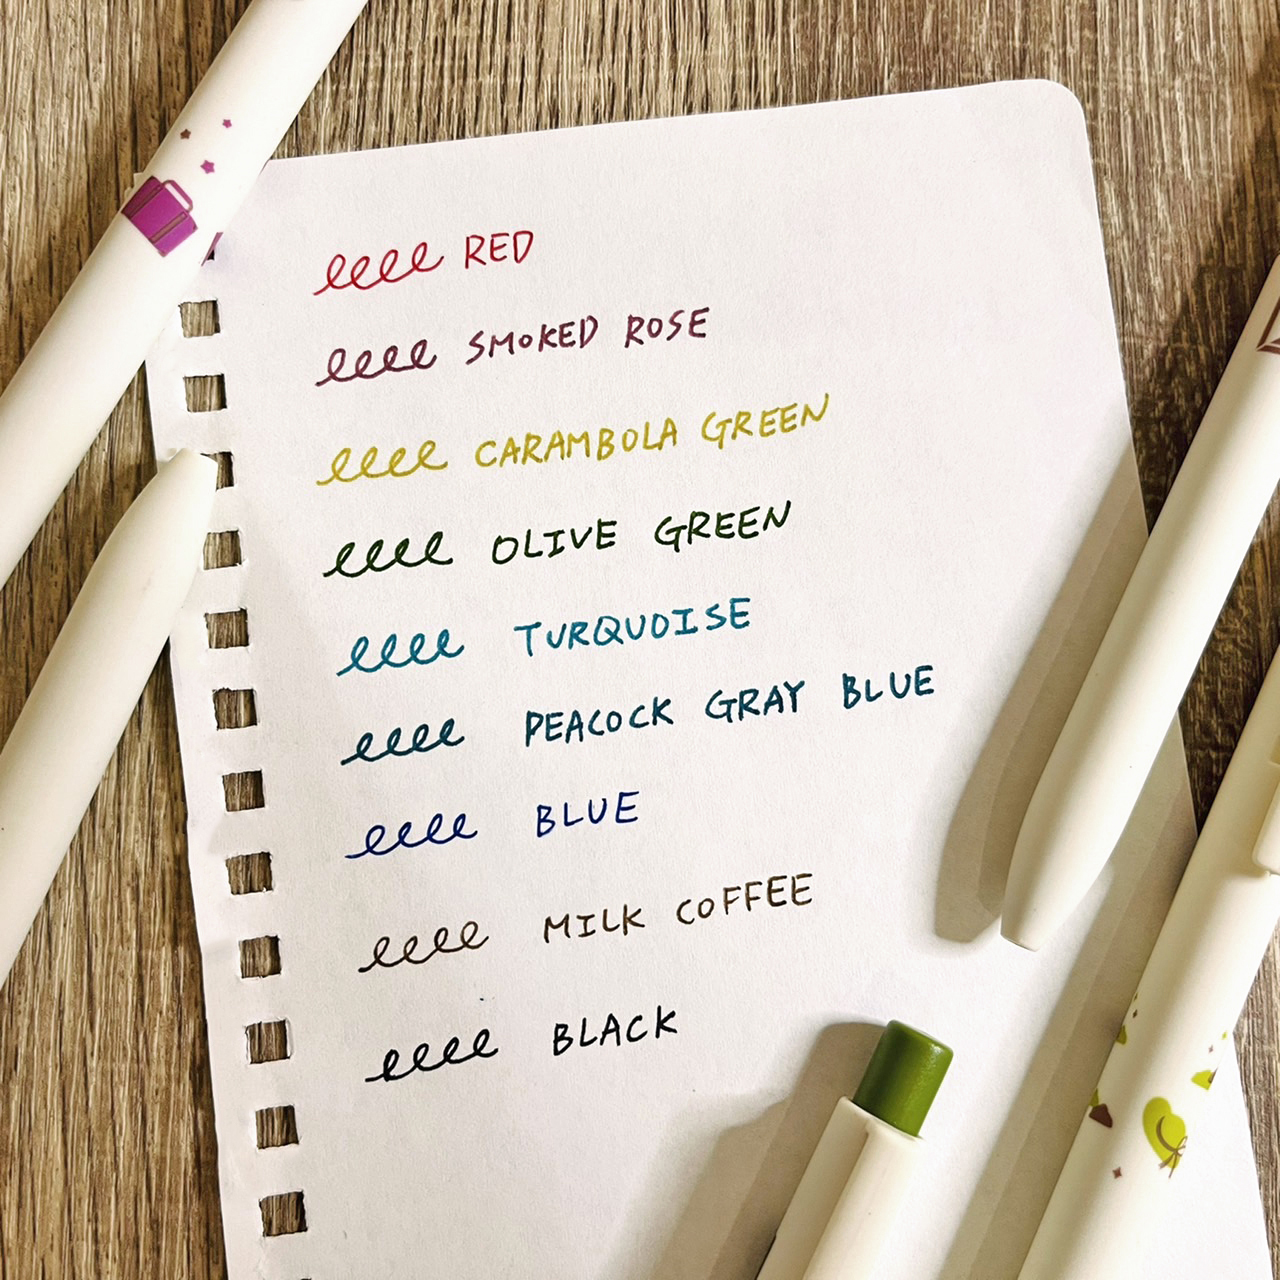 RED
SMOKED ROSE
CARAMBOLA GREEN
OLIVE GREEN
TURQUOISE
PEACOCK GRAY BLUE
BLUE
MILK COFFEE
BLACK